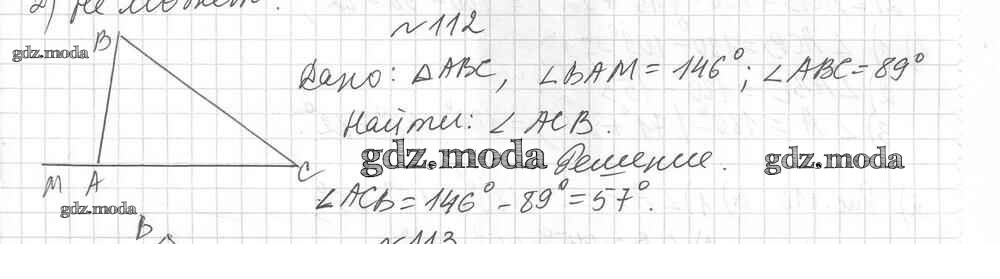 2) Не может.
№112
B
gdz.moda
Дано: △ABC, ∠BAM = 146°; ∠ABC = 89°
Найти: ∠ACB.
gdz.moda Решение. gdz.moda
M A C
∠ACB = 146° - 89° = 57°.
gdz.moda
B
№113